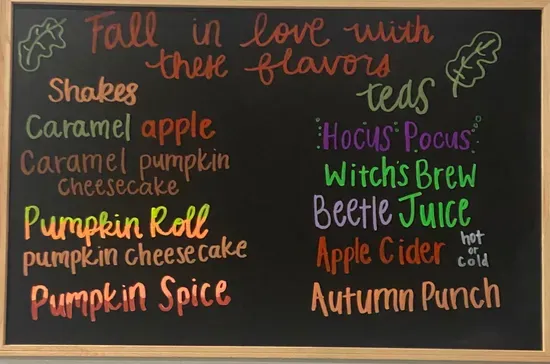 Fall in love with
these flavors
Shakes
Caramel apple
Caramel pumpkin
cheesecake
Pumpkin Roll
pumpkin cheesecake
Pumpkin Spice
teas
Hocus Pocus
Witch's Brew
Beetle Juice
Apple Cider hot or cold
Autumn Punch